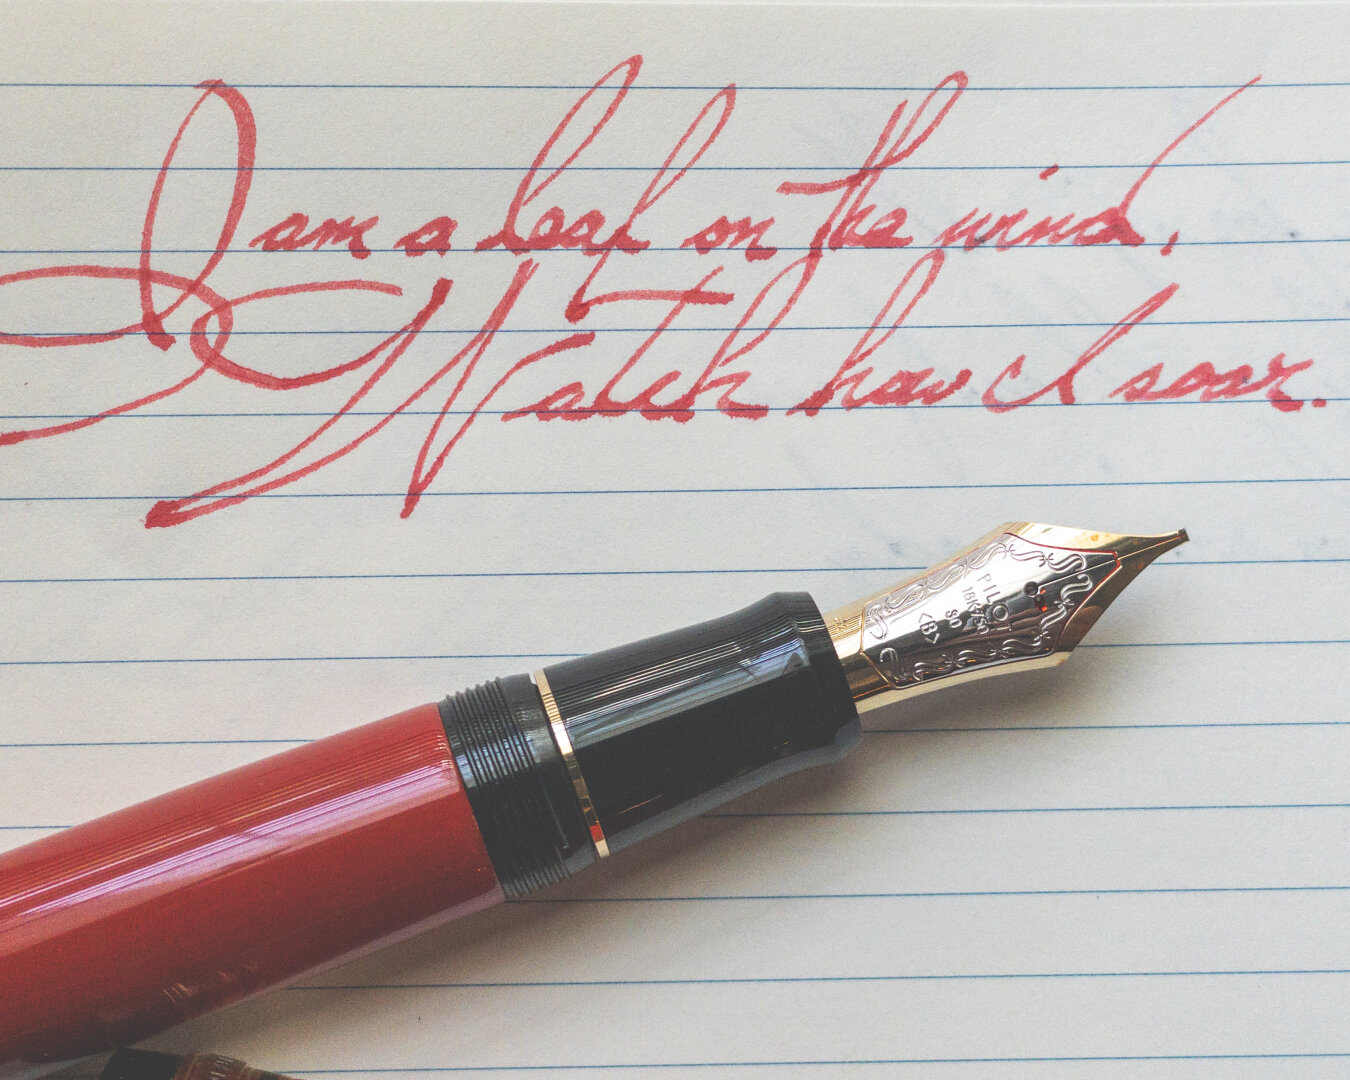 I am a leaf on the wind,
Watch how I soar.
PILOT
18K-750
80
<B>